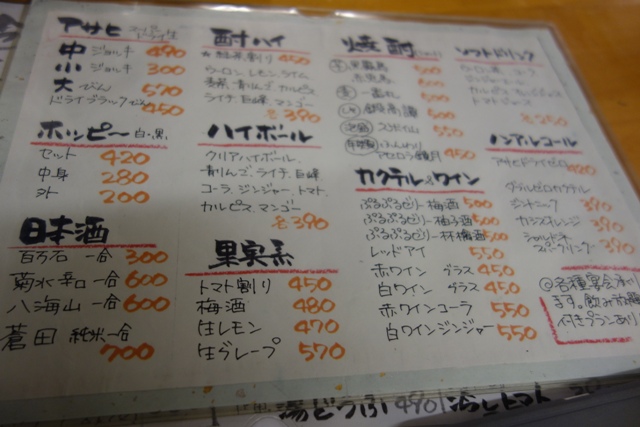 アサヒ
中 ジョッキ 490
小 ジョッキ 300
大 びん 570
ドライブラック びん 450
ホッピー 白・黒
セット 420
中身 280
外 200
日本酒
百万石 一合 300
菊水辛口 一合 600
八海山 一合 600
蒼田 純米一合 700
酎ハイ
450
ウーロン レモン ライム
青りんご カルピス
ライチ 巨峰 マンゴー
各390
ハイボール
クリアハイボール
青りんご、ライチ、巨峰
コーラ、ジンジャー、トマト
カルピス、マンゴー
各390
果実系
トマト割り 450
梅酒 480
生レモン 470
生グレープ 570
焼酎
500
500
一番札 500
550
450
カクテル・ワイン
ぷるぷるゼリー梅酒 500
ぷるぷるゼリー柚子酒 500
ぷるぷるゼリー杏梅酒 500
レッドアイ 550
赤ワイン グラス 450
白ワイン グラス 450
赤ワインコーラ 550
白ワインジンジャー 550
ソフトドリンク
ウーロン茶 コーラ
トマトジュース
各250
ノンアルコール
アサヒドライゼロ
390
カシスオレンジ 390
スパークリング 390
各種宴会承り
ます。飲み放題
付きプランあり
湯どうふ 490 冷しトマト